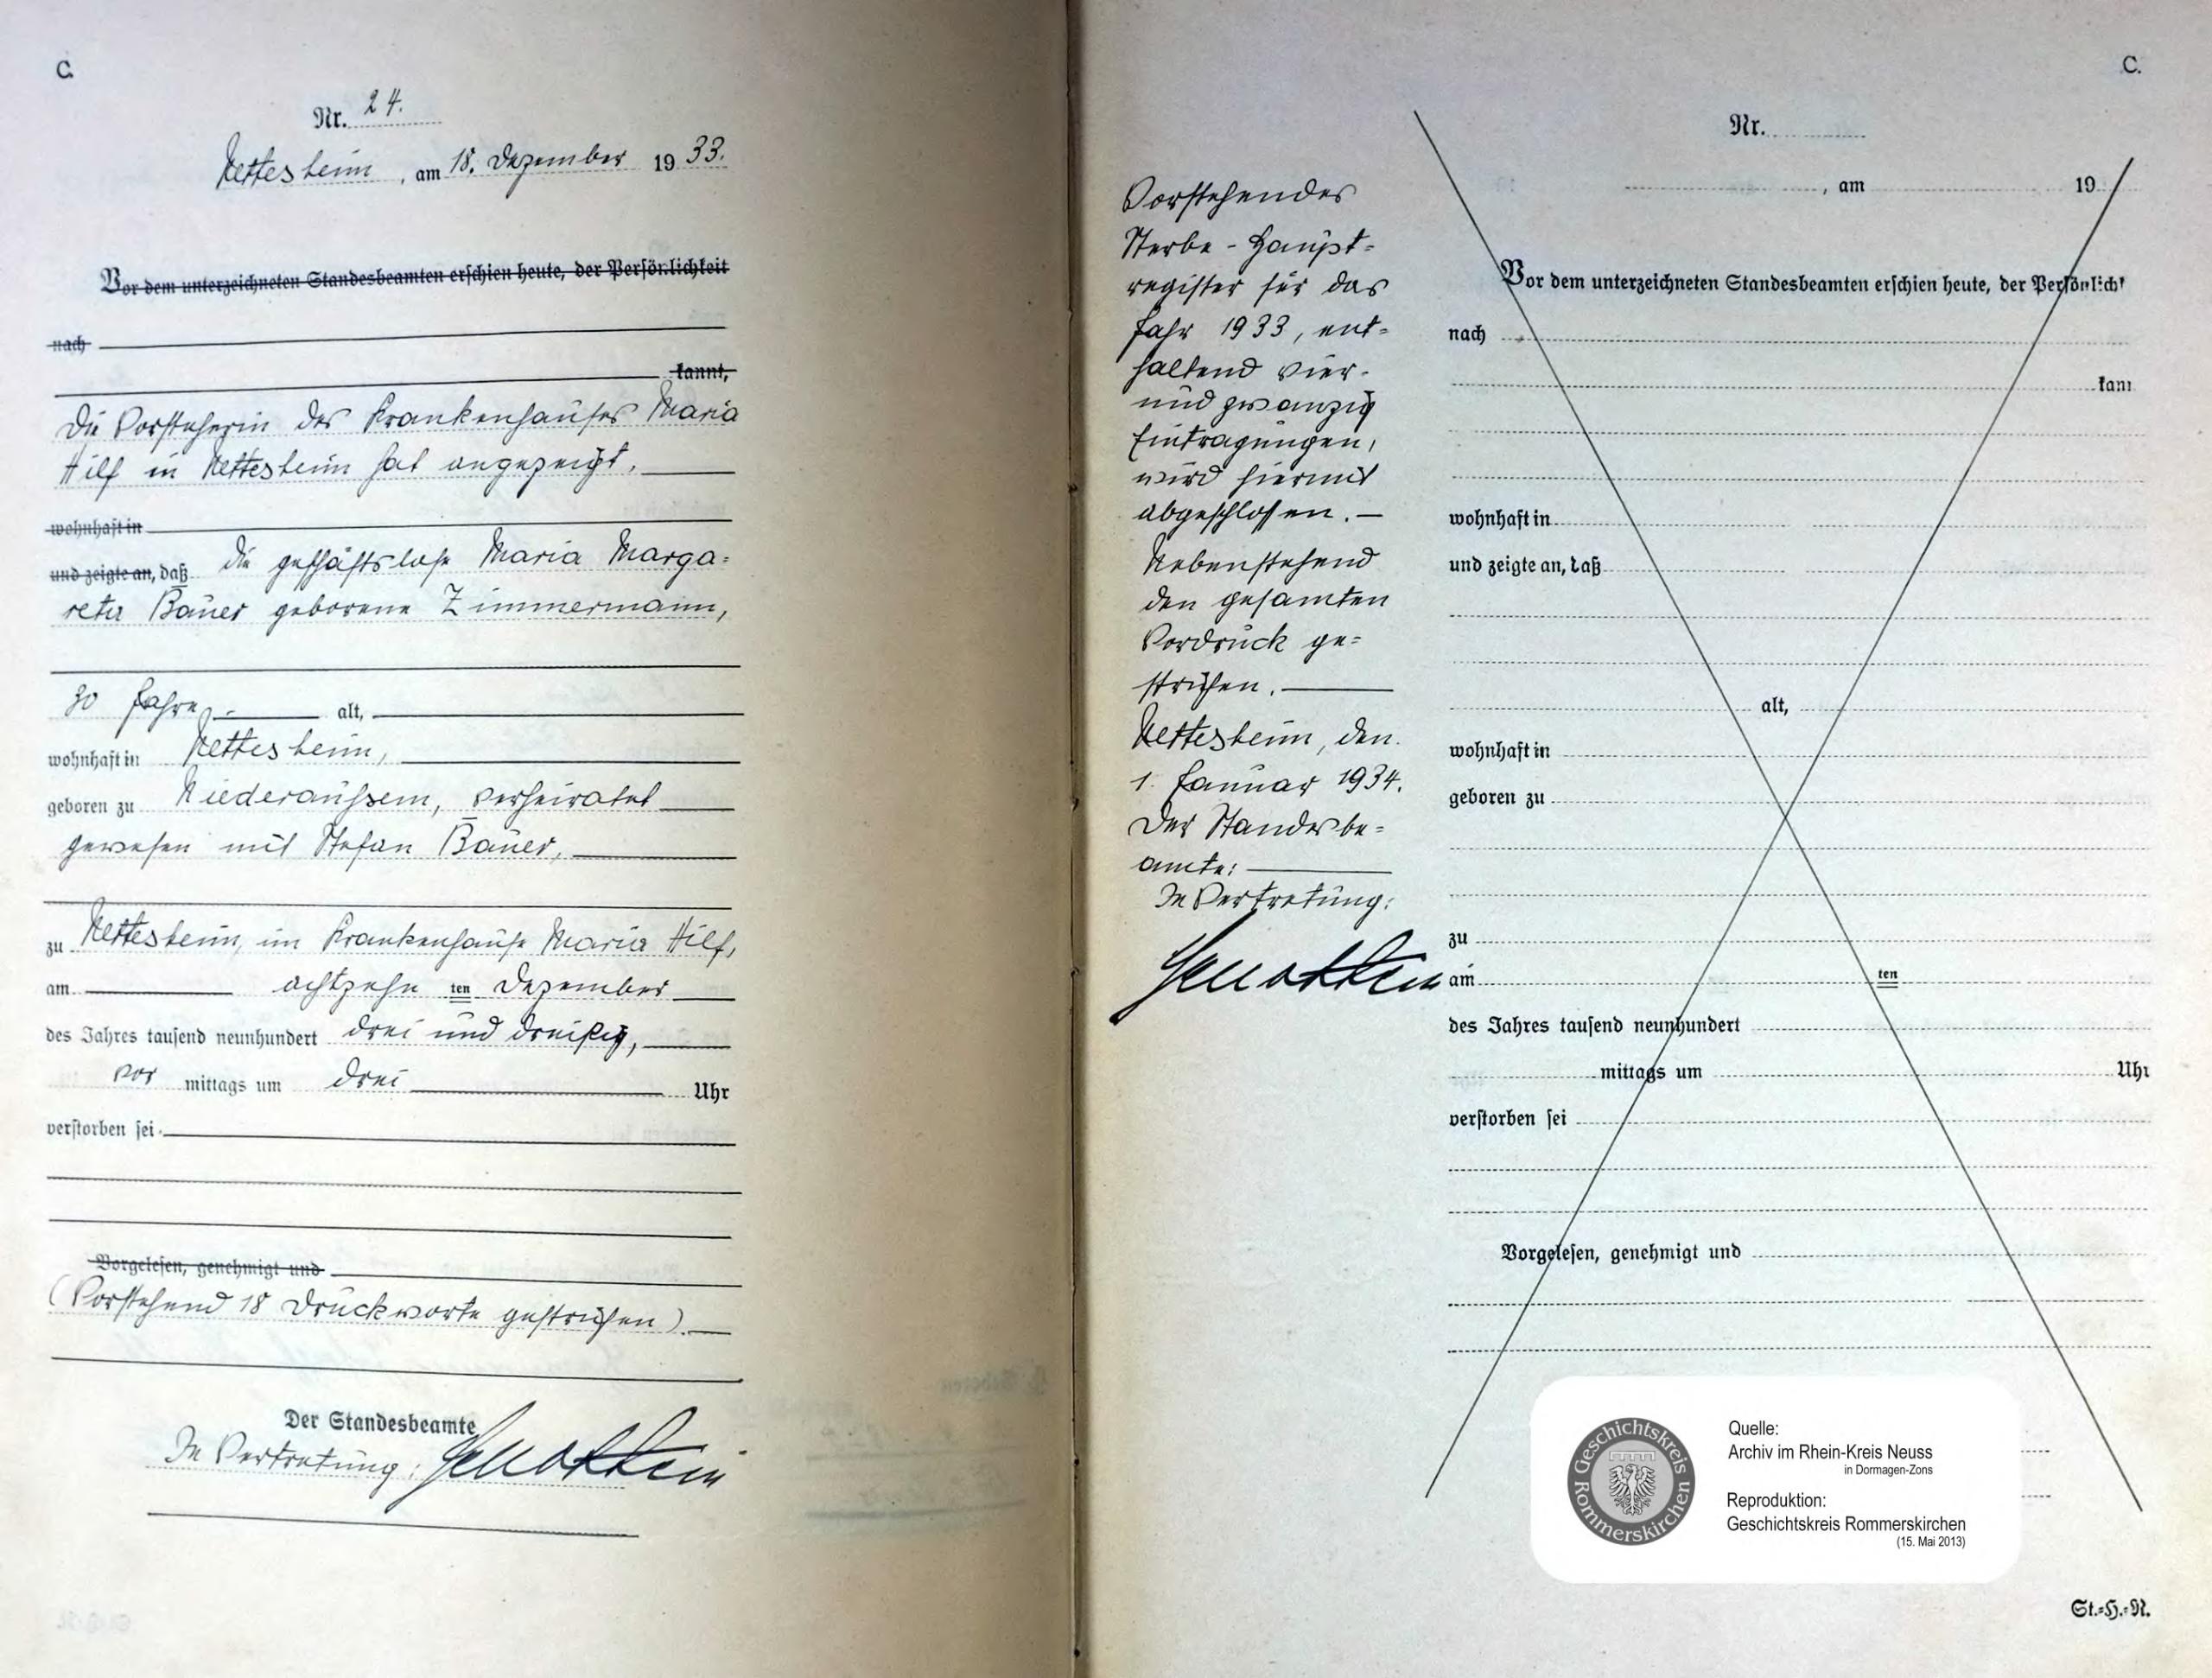 C.
Nr. 24.
Nettesheim, am 18. Dezember 1933.
Vor dem unterzeichneten Standesbeamten erschien heute, der Persönlichkeit
nach
kannt,
Die Vorsteherin des Krankenhauses Maria
Hilf in Nettesheim hat angezeigt,
wohnhaft in
und zeigte an, daß die geschäftslose Maria Marga=
reta Bauer geborene Zimmermann,
30 Jahre, alt,
wohnhaft in Nettesheim,
geboren zu Niederaußem, verheiratet
gewesen mit Stefan Bauer,
zu Nettesheim, im Krankenhause Maria Hilf,
am achtzehn ten Dezember
des Jahres tausend neunhundert drei und dreißig,
vor mittags um drei Uhr
verstorben sei
Vorgelesen, genehmigt und
(Vorstehend 18 Druckworte gestrichen).
Der Standesbeamte
In Vertretung:
C.
Nr.
, am 19
Vorstehendes
Sterbe-Haupt=
register für das
Jahr 1933, ent=
haltend vier-
und zwanzig
Eintragungen,
wird hiermit
abgeschlossen. —
Nebenstehend
den gesamten
Vordruck ge=
strichen.
Nettesheim, den
1. Januar 1934.
Der Standesbe=
amte:
In Vertretung:
Vor dem unterzeichneten Standesbeamten erschien heute, der Persönlich
nach
kann
wohnhaft in
und zeigte an, daß
alt,
wohnhaft in
geboren zu
zu
am ten
des Jahres tausend neunhundert
mittags um Uhr
verstorben sei
Vorgelesen, genehmigt und
Geschichtskreis Rommerskirchen
Quelle:
Archiv im Rhein-Kreis Neuss
in Dormagen-Zons
Reproduktion:
Geschichtskreis Rommerskirchen
(15. Mai 2013)
St.=H.=R.